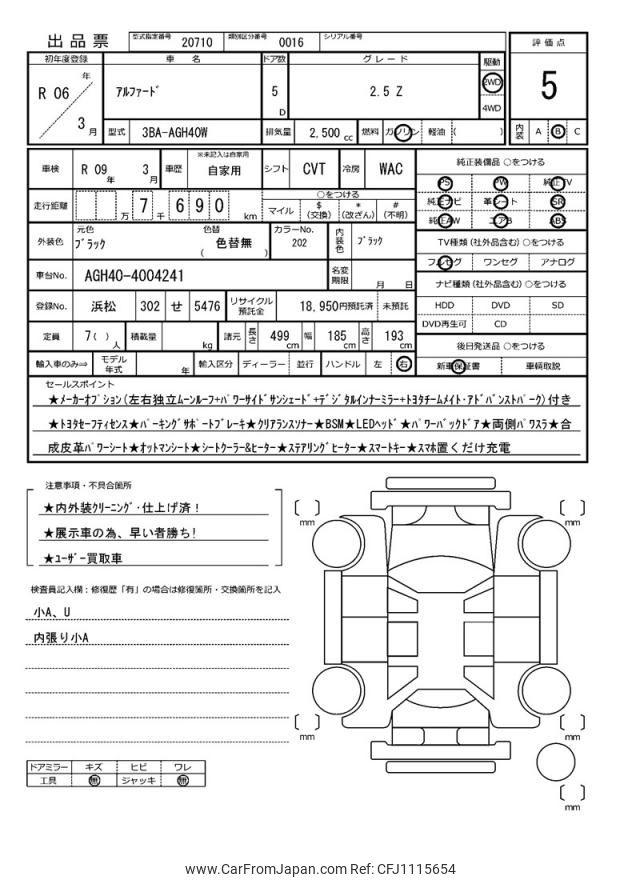 出品票 型式指定番号 20710 類別区分番号 0016 シリアル番号
評価点
5
内装 A B C
初年度登録 車名 ドア数 グレード 駆動
R 06 年 3 月 ｱﾙﾌｧｰﾄﾞ 5 D 2.5 Z 2WD 4WD
型式 3BA-AGH40W 排気量 2,500 cc 燃料 ガソリン 軽油 ( )
車検 R 09 年 3 月 車歴 ※未記入は自家用 自家用 シフト CVT 冷房 WAC
走行距離 万 7 千 6 9 0 km ○をつける
マイル $(交換) *(改ざん) #(不明)
外装色 元色 ﾌﾞﾗｯｸ 色替 ( 色替無 ) カラーNo. 202 内装色 ﾌﾞﾗｯｸ
車台No. AGH40-4004241 名変期限 月 日
登録No. 浜松 302 せ 5476 リサイクル預託金 18,950円預託済 未預託
定員 7( )人 積載量 kg 諸元 長さ 499 cm 幅 185 cm 高さ 193 cm
輸入車のみ⇒ モデル年式 年 輸入区分 ディーラー 並行 ハンドル 左 右
純正装備品 ○をつける
PS PW 純正TV
純正ナビ 革シート SR
純正AW エアB ABS
TV種類(社外品含む) ○をつける
フルセグ ワンセグ アナログ
ナビ種類(社外品含む) ○をつける
HDD DVD SD
DVD再生可 CD
後日発送品 ○をつける
新車保証書 車輌取説
セールスポイント
★ﾒｰｶｰｵﾌﾟｼｮﾝ(左右独立ﾑｰﾝﾙｰﾌ+ﾊﾟﾜｰｻｲﾄﾞｻﾝｼｪｰﾄﾞ+ﾃﾞｼﾞﾀﾙｲﾝﾅｰﾐﾗｰ+ﾄﾖﾀﾁｰﾑﾒｲﾄ･ｱﾄﾞﾊﾞﾝｽﾄﾊﾟｰｸ)付き
★ﾄﾖﾀｾｰﾌﾃｨｾﾝｽ★ﾊﾟｰｷﾝｸﾞｻﾎﾟｰﾄﾌﾞﾚｰｷ★ｸﾘｱﾗﾝｽｿﾅｰ★BSM★LEDﾍｯﾄﾞ★ﾊﾟﾜｰﾊﾞｯｸﾄﾞｱ★両側ﾊﾟﾜｽﾗ★合
成皮革ﾊﾟﾜｰｼｰﾄ★ｵｯﾄﾏﾝｼｰﾄ★ｼｰﾄｸｰﾗｰ&ﾋｰﾀｰ★ｽﾃｱﾘﾝｸﾞﾋｰﾀｰ★ｽﾏｰﾄｷｰ★ｽﾏﾎ置くだけ充電
注意事項・不具合箇所
★内外装ｸﾘｰﾆﾝｸﾞ･仕上げ済！
★展示車の為、早い者勝ち!
★ﾕｰｻﾞｰ買取車
検査員記入欄：修復歴「有」の場合は修復箇所・交換箇所を記入
小A、U
内張り小A
ドアミラー キズ ヒビ ワレ
工具 無 ジャッキ 無
[ ] mm
[ ] mm
[ ] mm
[ ] mm
[ ] mm
www.CarFromJapan.com Ref: CFJ1115654